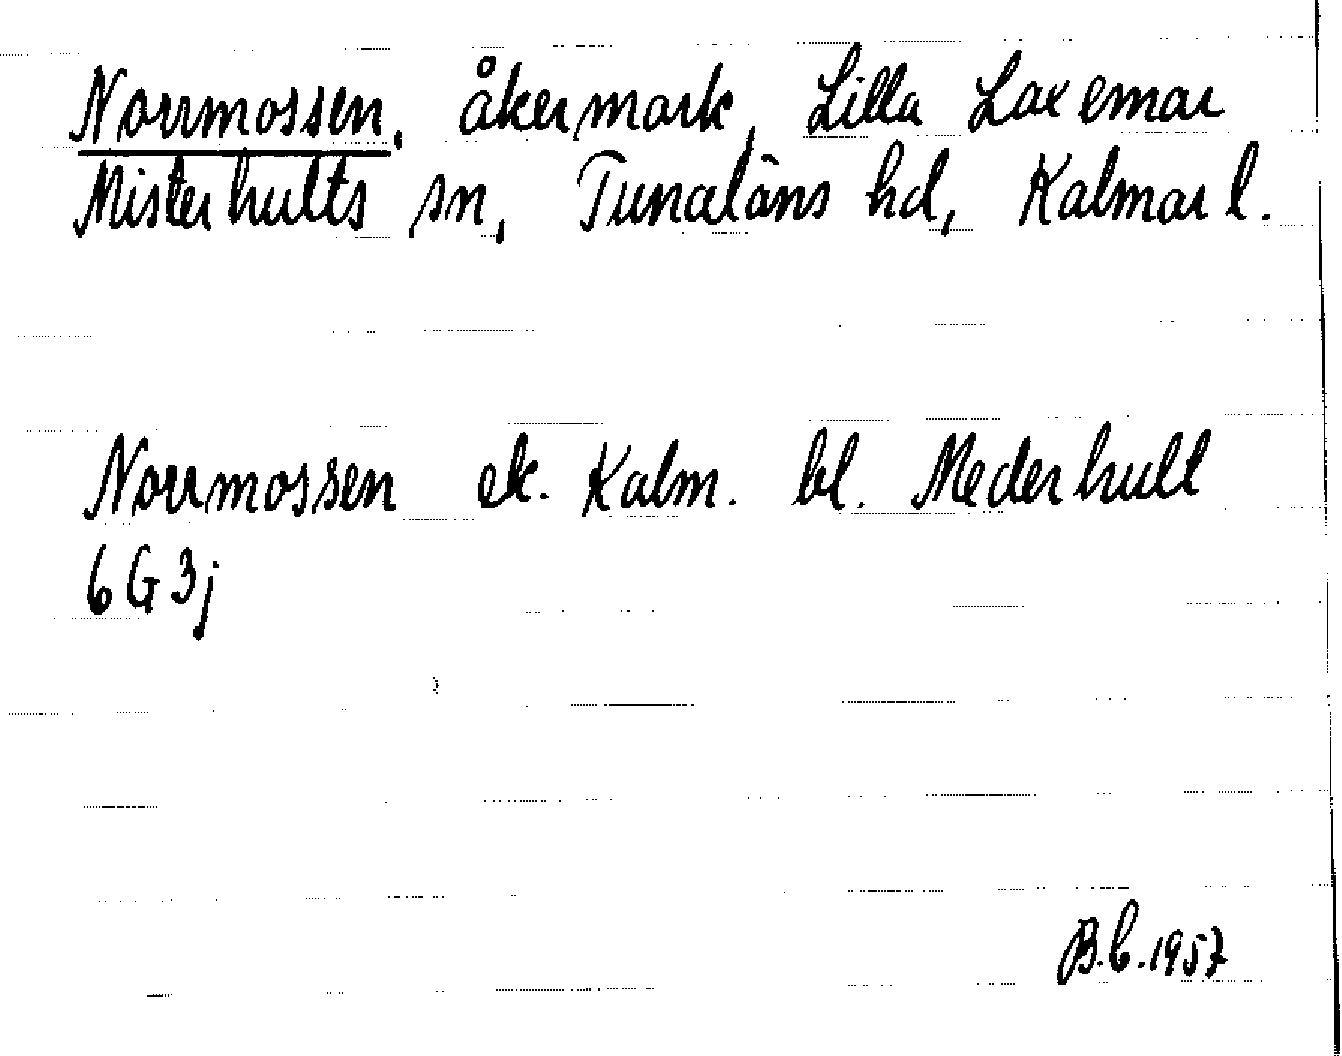 Norrmossen, åkermark, Lilla Laxemar
Misterhults sn, Tunaläns hd, Kalmar l.
Norrmossen ek. Kalm. bl. Mederhult
6G3j
B.C.1957